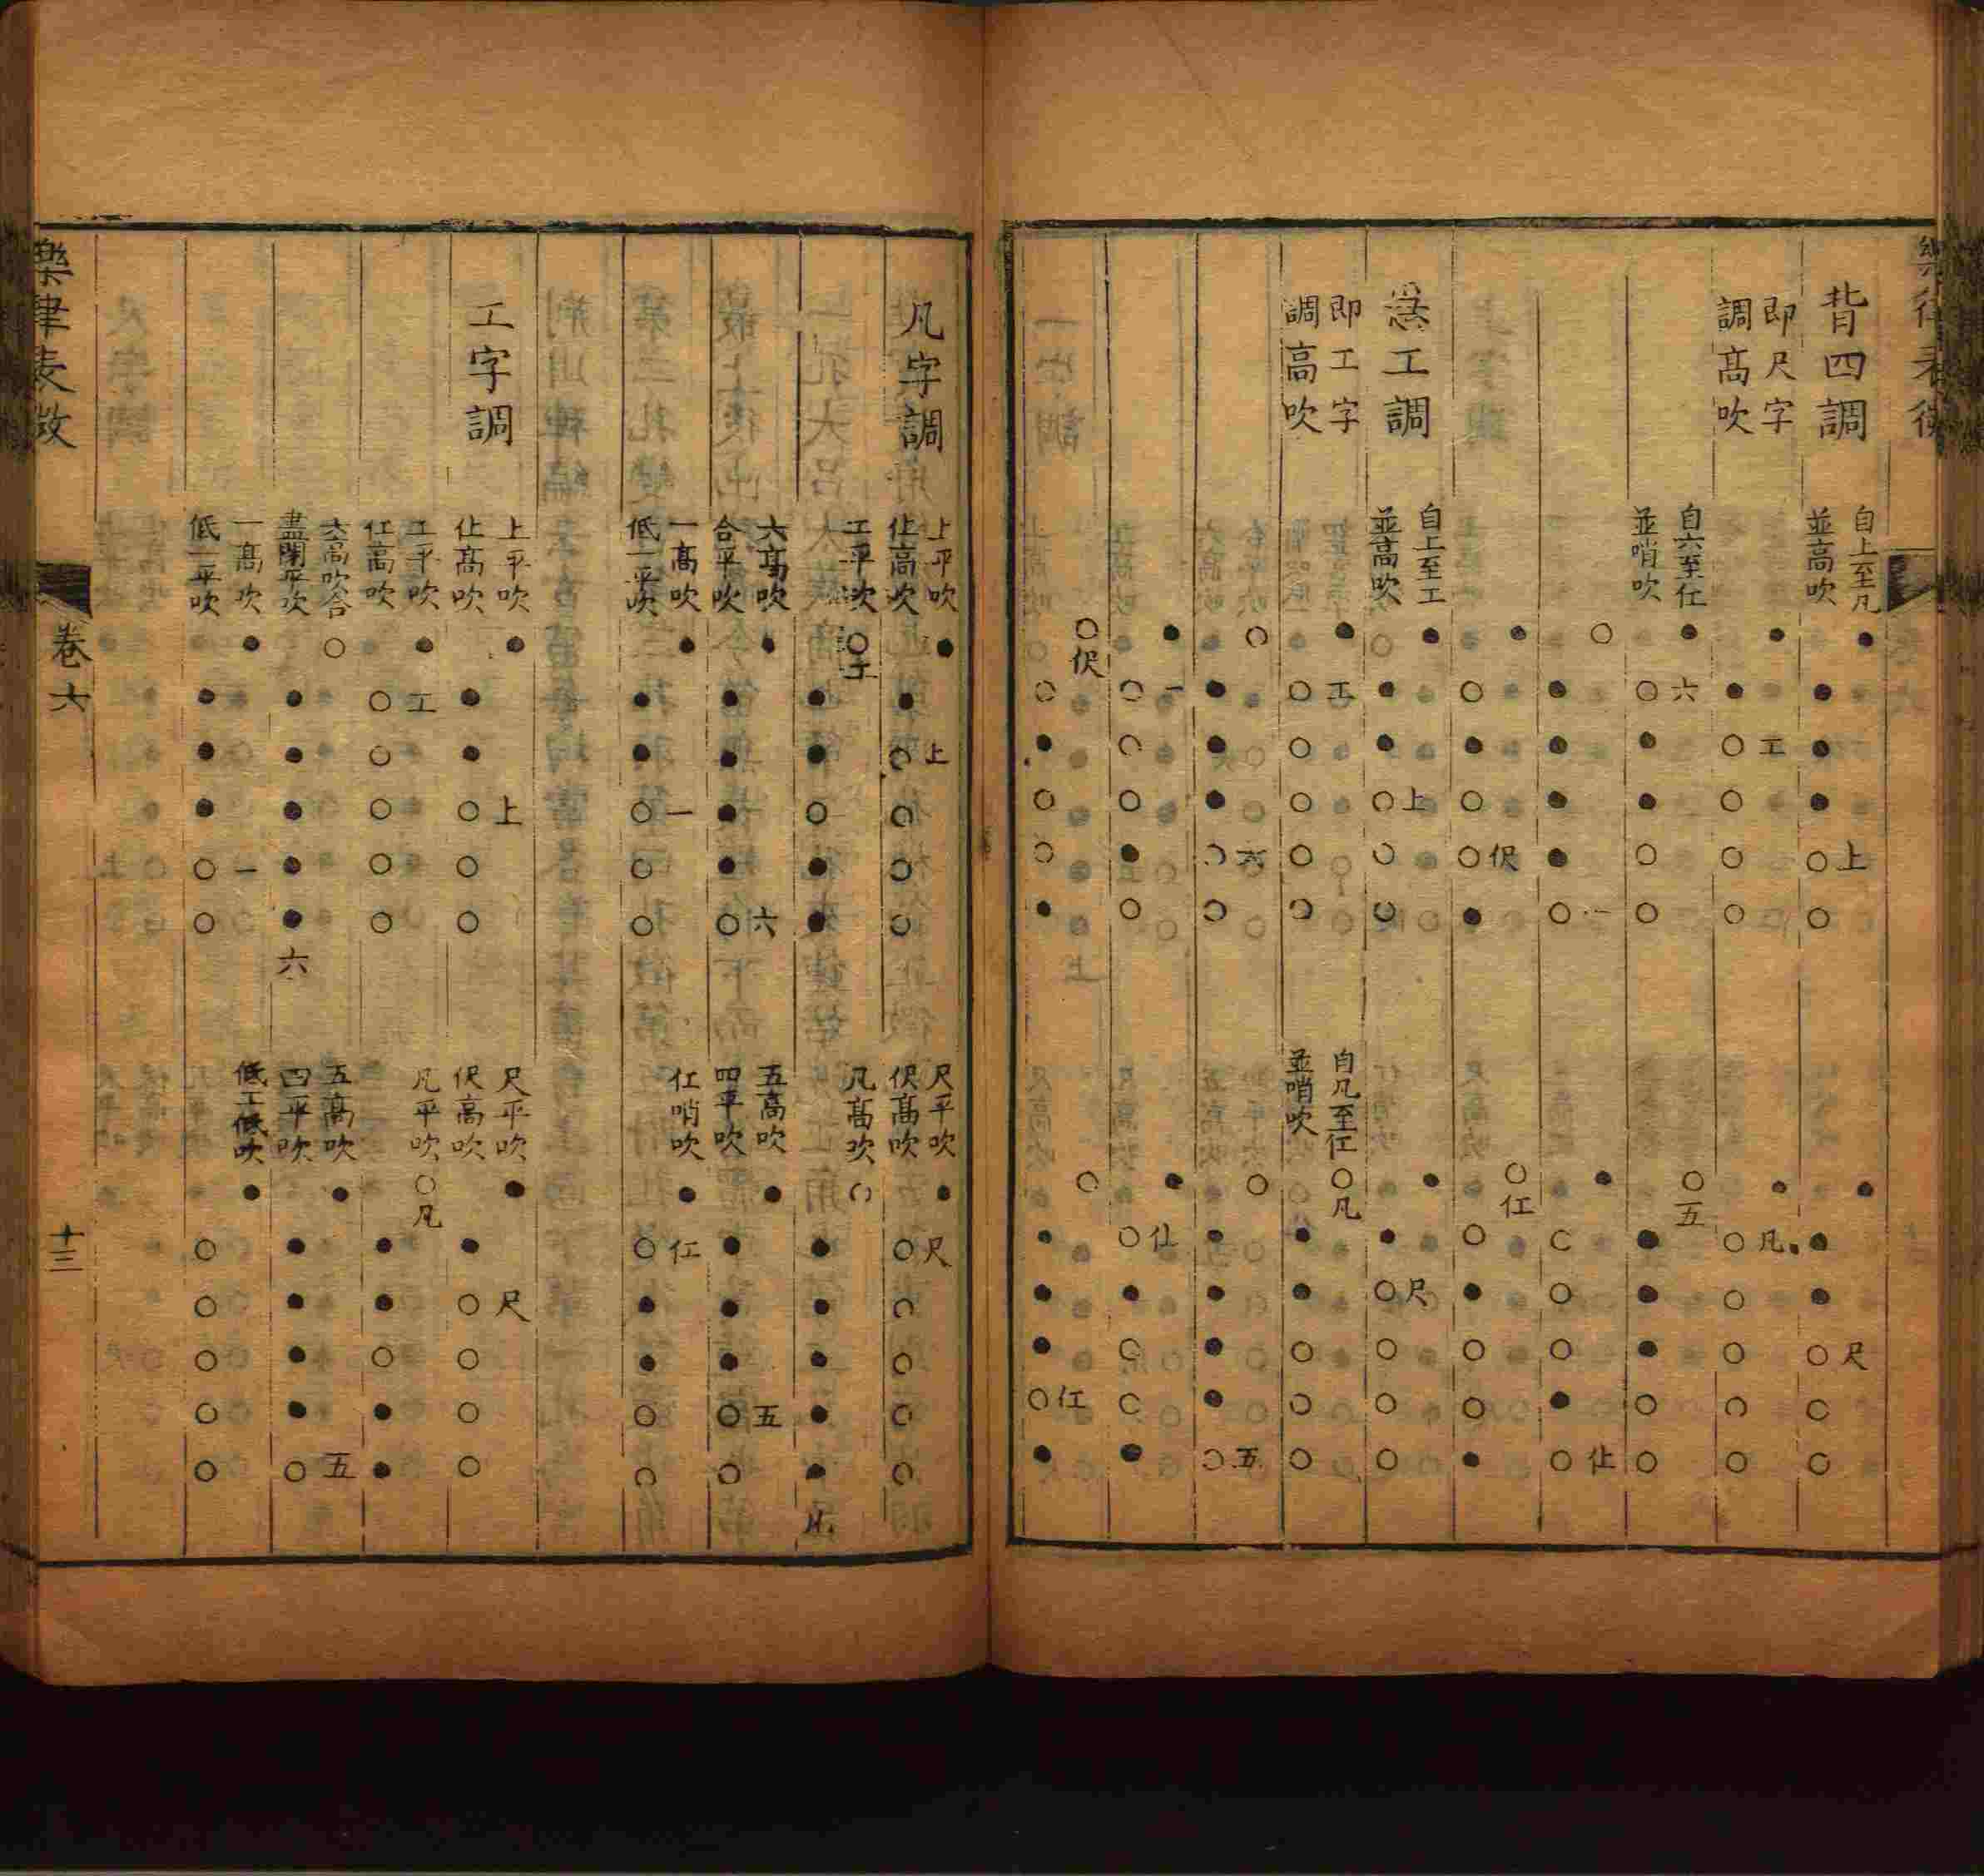 背四調
即尺字
調高吹
自上至凡
並高吹
● ● ● ● ○上 ○
● ● ● ○尺 ○ ○
● ● ○工 ○ ○ ○
● ○凡 ○ ○ ○ ○
自六至仩
並哨吹
● ○六 ● ● ○ ○
○五 ● ● ● ○ ○
○ ● ● ● ● ○一
● ○ ○ ○ ● ○仩
● ○ ● ○ ○伬 ●
○仜 ○ ● ○ ○ ●
工調
即工字
調高吹
自上至工
並高吹
● ● ● ○上 ○ ○
● ● ○尺 ○ ○ ○
● ○工 ○ ○ ○ ○
自凡至仜
並哨吹
○凡 ● ● ○ ○ ○
○ ● ● ● ○六 ○
○ ● ● ● ● ○五
● ○一 ○ ○ ● ○
● ○仩 ● ○ ○ ●
○伬 ○ ● ○ ○ ●
○ ● ● ● ○仜 ●
凡字調
上平吹
仩高吹
● ● ○上 ○ ○ ○
尺平吹
伬高吹
● ○尺 ○ ○ ○ ○
工平吹
○工 ● ● ○ ● ●
凡高吹
○ ● ● ● ● ●凡
六高吹
合平吹
● ● ● ● ● ○六
五高吹
四平吹
● ● ● ● ○五 ○
一高吹
低一平吹
● ● ● ○一 ○ ○
仜哨吹
● ○仜 ● ● ○ ○
工字調
上平吹
仩高吹
● ● ● ○上 ○ ○
尺平吹
伬高吹
● ● ○尺 ○ ○ ○
工平吹
仜高吹
● ○工 ○ ○ ○ ○
凡平吹
○凡 ● ● ○ ● ●
六高吹合
盡閉平吹
○ ● ● ● ● ●六
五高吹
四平吹
● ● ● ● ● ○五
一高吹
低一平吹
● ● ● ● ○一 ○
低工低吹
● ○ ○ ○ ○ ○
卷六
十三